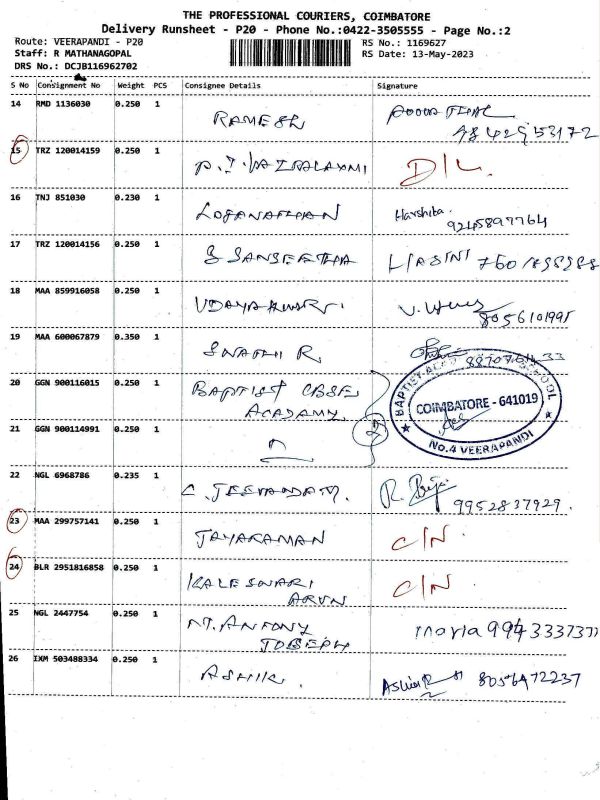 THE PROFESSIONAL COURIERS, COIMBATORE
Delivery Runsheet - P20 - Phone No.:0422-3505555 - Page No.:2
Route: VEERAPANDI - P20
Staff: R MATHANAGOPAL
DRS No.: DCJB116962702
RS No.: 1169627
RS Date: 13-May-2023
S No Consignment No Weight PCS Consignee Details Signature
14 RMD 1136030 0.250 1 RAMESH
15 TRZ 120014159 0.250 1 D/L.
16 TNJ 851030 0.230 1 LOGANATHAN Harshiba. 9245897764
17 TRZ 120014156 0.250 1 S SANGEETHA
18 MAA 859916058 0.250 1 8056101995
19 MAA 600067879 0.350 1 SWATHI R
20 GGN 900116015 0.250 1 BAPTIST CBSE
ACADEMY
21 GGN 900114991 0.250 1 2
COIMBATORE - 641019
No.4 VEERAPANDI
22 NGL 6968786 0.235 1 C. JEEVANDAM. 9952837929.
23 MAA 299757141 0.250 1 JAYARAMAN C/N.
24 BLR 2951816858 0.250 1 KALESWARI C/N.
ARUN
25 NGL 2447754 0.250 1 MT. ANTONY maria
JOSEPH
26 IXM 503488334 0.250 1 ASHIK. 8056472237